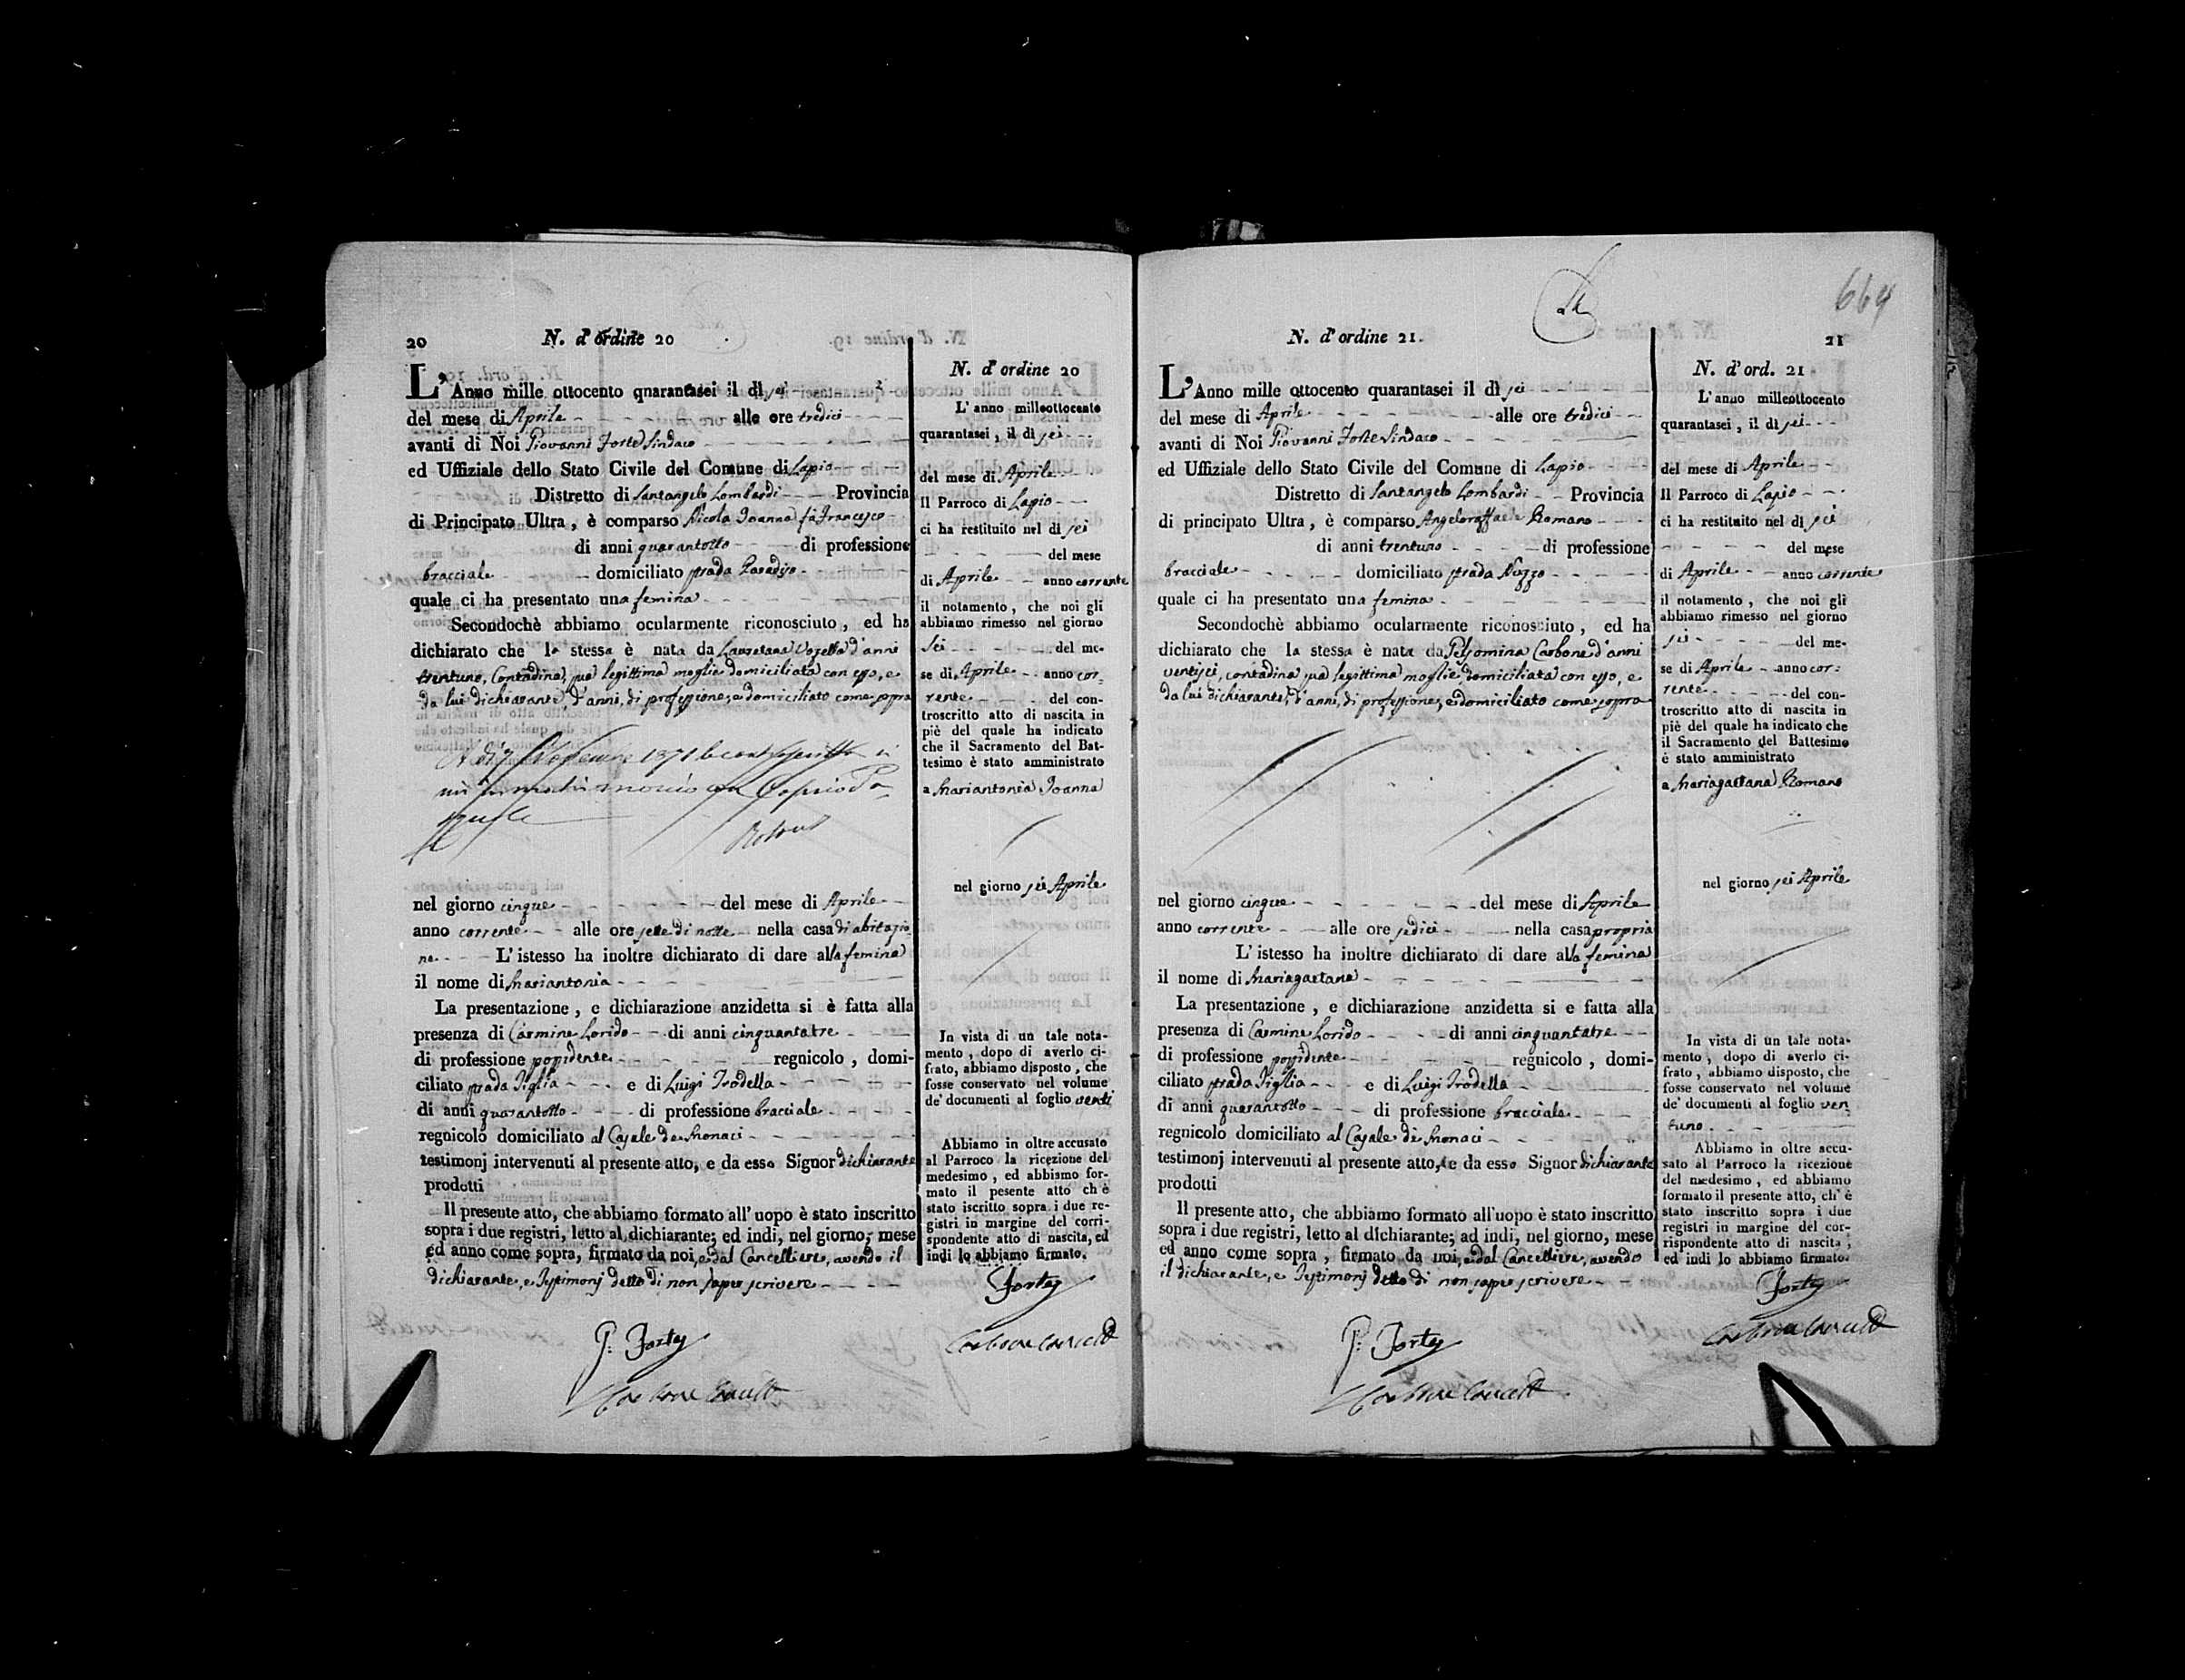 20
N. d'ordine 20
L'Anno mille ottocento qnarantasei il dì sei
del mese di Aprile alle ore tredici
avanti di Noi Giovanni Forte Sindaco
ed Uffiziale dello Stato Civile del Comune di Lapio
Distretto di Santangelo Lombardi Provincia
di Principato Ultra, è comparso Nicola Joanna fù Francesco
di anni quarantotto di professione
bracciale domiciliato strada Paradiso
quale ci ha presentato una femina
Secondochè abbiamo ocularmente riconosciuto, ed ha
dichiarato che la stessa è nata da Lauretana Vozella d'anni
trentuno, Contadina, sua legittima moglie domiciliata con esso, e
da lui dichiarante, d'anni, di professione, e domiciliato come sopra
1871
nel giorno cinque del mese di Aprile
anno corrente alle ore sette di notte nella casa di abitazio
ne L'istesso ha inoltre dichiarato di dare alla femina
il nome di Mariantonia
La presentazione, e dichiarazione anzidetta si è fatta alla
presenza di Carmine Lorido di anni cinquantatre
di professione possidente regnicolo, domi-
ciliato strada Siglia e di Luigi Trodella
di anni quarantotto di professione bracciale
regnicolo domiciliato al Casale de Monaci
testimonj intervenuti al presente atto, e da esso Signor dichiarante
prodotti
Il presente atto, che abbiamo formato all'uopo è stato inscritto
sopra i due registri, letto al dichiarante; ed indi, nel giorno, mese
ed anno come sopra, firmato da noi, e dal Cancelliere, avendo il
dichiarante, e Testimonj detto di non saper scrivere
G. Forte
N. d'ordine 20
L'anno milleottocento
quarantasei, il dì sei
del mese di Aprile
Il Parroco di Lapio
ci ha restituito nel dì sei
del mese
di Aprile anno corrente
il notamento, che noi gli
abbiamo rimesso nel giorno
Sei del me-
se di Aprile anno cor:
rente del con-
troscritto atto di nascita in
piè del quale ha indicato
che il Sacramento del Bat-
tesimo è stato amministrato
a Mariantonia Joanna
nel giorno sei Aprile
In vista di un tale nota-
mento, dopo di averlo ci-
frato, abbiamo disposto, che
fosse conservato nel volume
de' documenti al foglio venti
Abbiamo in oltre accusato
al Parroco la ricezione del
medesimo, ed abbiamo for-
mato il pesente atto ch è
stato iscritto sopra i due re-
gistri in margine del corri-
spondente atto di nascita, ed
indi lo abbiamo firmato.
Forte
664
N. d'ordine 21.
21
L'Anno mille ottocento quarantasei il dì sei
del mese di Aprile alle ore tredici
avanti di Noi Giovanni Forte Sindaco
ed Uffiziale dello Stato Civile del Comune di Lapio
Distretto di Santangelo Lombardi Provincia
di principato Ultra, è comparso Angeloraffaele Romano
di anni trentuno di professione
bracciale domiciliato strada Nuzzo
quale ci ha presentato una femina
Secondochè abbiamo ocularmente riconosciuto, ed ha
dichiarato che la stessa è nata da Carbone d'anni
ventisei, contadina sua legittima moglie, domiciliata con esso, e
da lui dichiarante, d'anni, di professione, e domiciliato come sopra
nel giorno cinque del mese di Aprile
anno corrente alle ore sedici nella casa propria
L'istesso ha inoltre dichiarato di dare alla femina
il nome di Mariagaetana
La presentazione, e dichiarazione anzidetta si e fatta alla
presenza di Carmine Lorido di anni cinquantatre
di professione possidente regnicolo, domi-
ciliato strada Siglia e di Luigi Trodella
di anni quarantotto di professione bracciale
regnicolo domiciliato al Casale de Monaci
testimonj intervenuti al presente atto, e da esso Signor dichiarante
prodotti
Il presente atto, che abbiamo formato all'uopo è stato inscritto
sopra i due registri, letto al dichiarante; ad indi, nel giorno, mese
ed anno come sopra, firmato da noi, e dal Cancelliere, avendo
il dichiarante, e Testimonj detto di non saper scrivere
G. Forte
N. d'ord. 21
L'anno milleottocento
quarantasei, il dì sei
del mese di Aprile
Il Parroco di Lapio
ci ha restituito nel dì sei
del mese
di Aprile anno corrente
il notamento, che noi gli
abbiamo rimesso nel giorno
sei del me-
se di Aprile anno cor:
rente del con-
troscritto atto di nascita in
piè del quale ha indicato che
il Sacramento del Battesimo
è stato amministrato
a Mariagaetana Romano
nel giorno sei Aprile
In vista di un tale nota-
mento, dopo di averlo ci-
frato, abbiamo disposto, che
fosse conservato nel volume
de' documenti al foglio ven
tuno
Abbiamo in oltre accu-
sato al Parroco la ricezione
del medesimo, ed abbiamo
formato il presente atto, ch' è
stato inscritto sopra i due
registri in margine del cor-
rispondente atto di nascita,
ed indi lo abbiamo firmato.
Forte